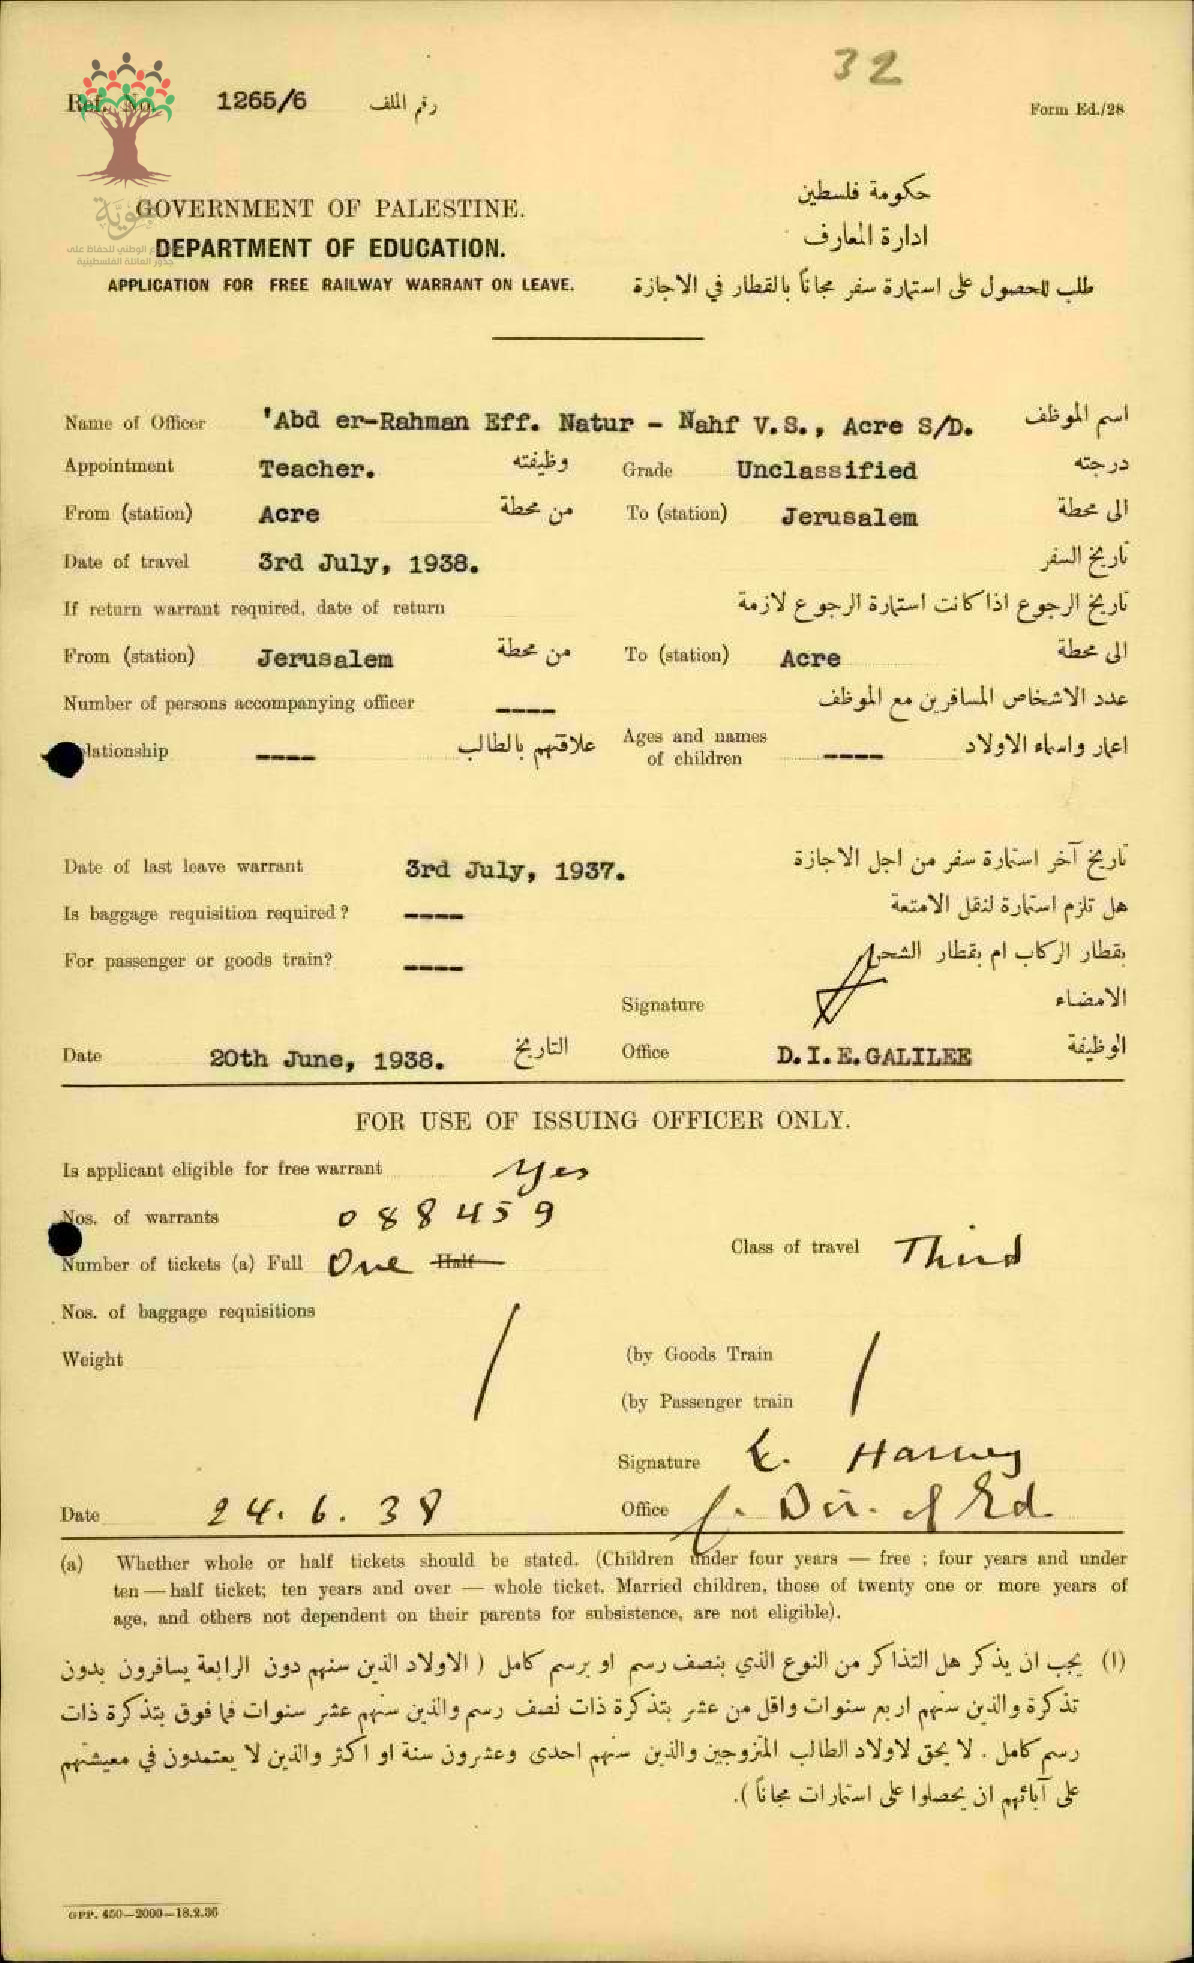 32
Ref. No. 1265/6 رقم الملف
Form Ed./28
هوية
GOVERNMENT OF PALESTINE. حكومة فلسطين
DEPARTMENT OF EDUCATION. ادارة المعارف
APPLICATION FOR FREE RAILWAY WARRANT ON LEAVE. طلب للحصول على استمارة سفر مجاناً بالقطار في الاجازة
Name of Officer 'Abd er-Rahman Eff. Natur - Nahf V.S., Acre S/D. اسم الموظف
Appointment Teacher. وظيفته Grade Unclassified درجته
From (station) Acre من محطة To (station) Jerusalem الى محطة
Date of travel 3rd July, 1938. تاريخ السفر
If return warrant required, date of return تاريخ الرجوع اذا كانت استمارة الرجوع لازمة
From (station) Jerusalem من محطة To (station) Acre الى محطة
Number of persons accompanying officer ---- عدد الاشخاص المسافرين مع الموظف
lationship ---- علاقتهم بالطالب Ages and names of children ---- اعمار واسماء الاولاد
Date of last leave warrant 3rd July, 1937. تاريخ آخر استمارة سفر من اجل الاجازة
Is baggage requisition required? ---- هل تلزم استمارة لنقل الامتعة
For passenger or goods train? ---- بقطار الركاب ام بقطار الشحن
Signature الامضاء
Date 20th June, 1938. التاريخ Office D.I.E.GALILEE الوظيفة
FOR USE OF ISSUING OFFICER ONLY.
Is applicant eligible for free warrant yes
Nos. of warrants 088459
Class of travel Third
Number of tickets (a) Full One Half
Nos. of baggage requisitions
Weight (by Goods Train
(by Passenger train
Signature E. Harvey
Date 24. 6. 38 Office f. Dir. of Ed.
(a) Whether whole or half tickets should be stated. (Children under four years — free ; four years and under
ten — half ticket; ten years and over — whole ticket. Married children, those of twenty one or more years of
age, and others not dependent on their parents for subsistence, are not eligible).
(١) يجب ان يذكر هل التذاكر من النوع الذي بنصف رسم او برسم كامل ( الاولاد الذين سنهم دون الرابعة يسافرون بدون
تذكرة والذين سنهم اربع سنوات واقل من عشر بتذكرة ذات نصف رسم والذين سنهم عشر سنوات فما فوق بتذكرة ذات
رسم كامل . لا يحق لاولاد الطالب المتزوجين والذين سنهم احدى وعشرون سنة او اكثر والذين لا يعتمدون في معيشتهم
على آبائهم ان يحصلوا على استمارات مجاناً ).
GPP. 450—2000—18.2.36